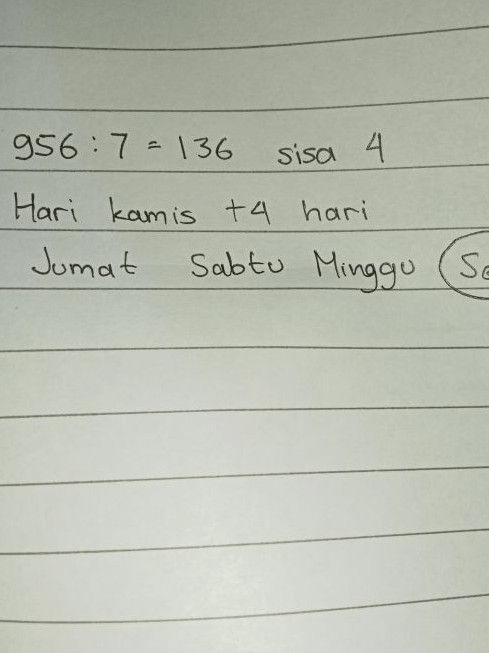 956 : 7 = 136 sisa 4
Hari kamis +4 hari
Jumat Sabtu Minggu